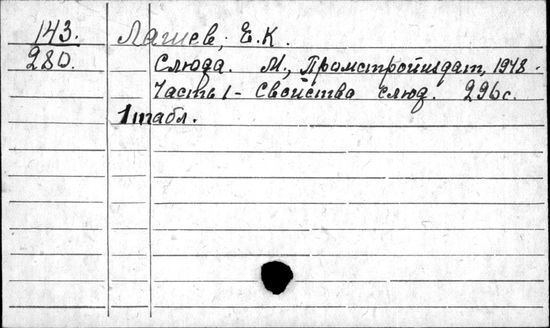 143. Лашев, Е.К.
280. Слюда. М., Промстройиздат, 1948.
Часть 1 - Свойства слюд. 296с.
1 табл.